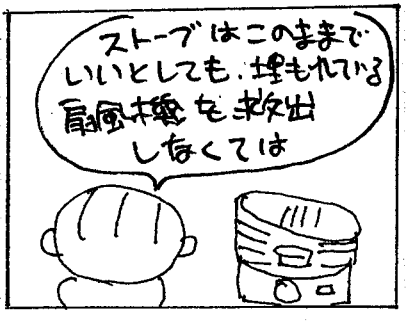 ストーブはこのままで
いいとしても、埋もれている
扇風機を救出
しなくては